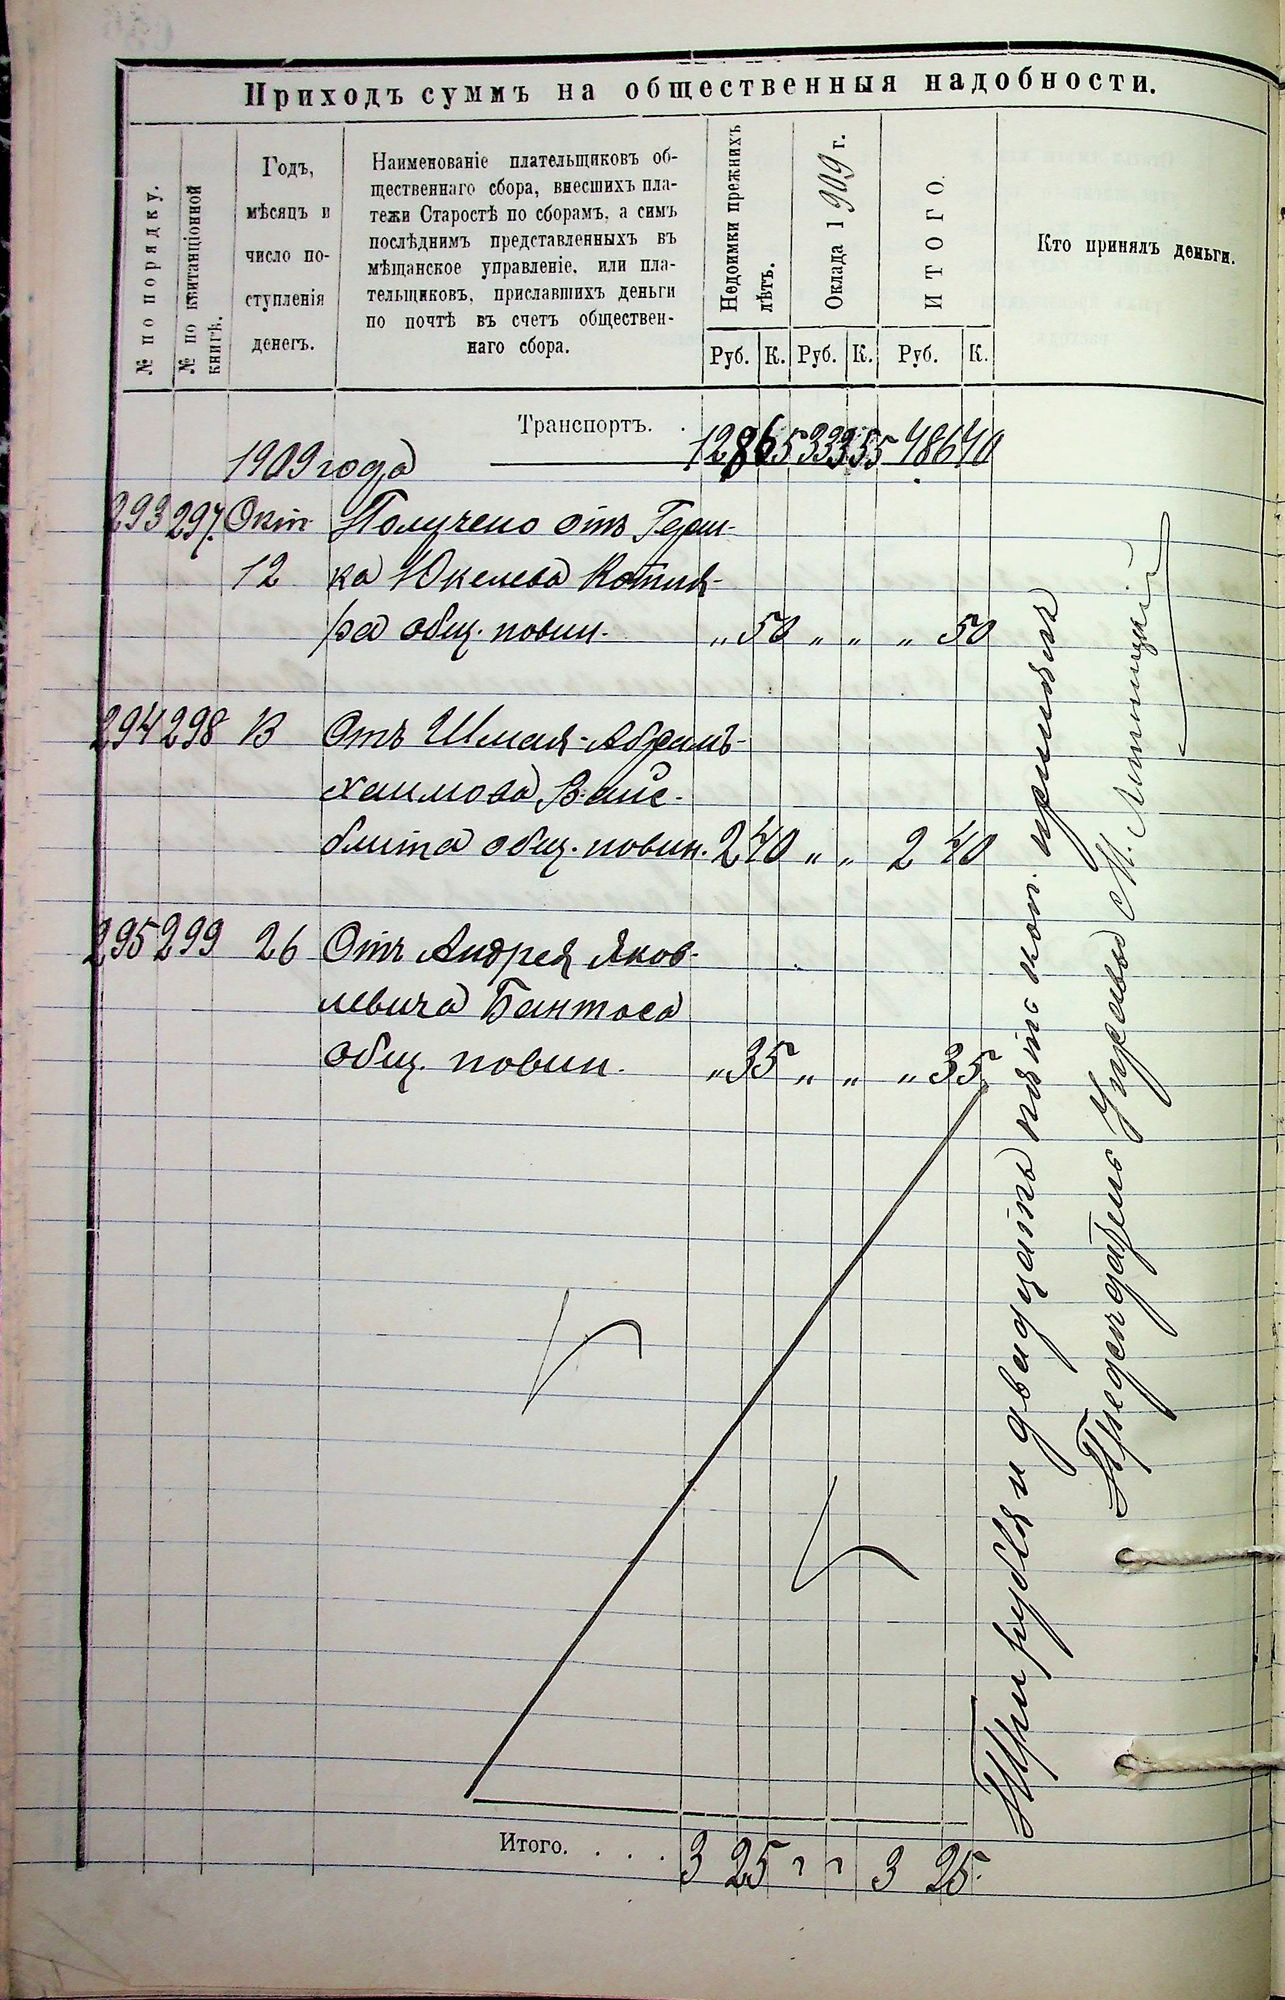 Приходъ суммъ на общественныя надобности.
№ по порядку.
№ по квитанціонной книгѣ.
Годъ,
мѣсяцъ и
число по-
ступленія
денегъ.
Наименованіе плательщиковъ об-
щественнаго сбора, внесшихъ пла-
тежи Старостѣ по сборамъ, а симъ
послѣднимъ представленныхъ въ
мѣщанское управленіе, или пла-
тельщиковъ, приславшихъ деньги
по почтѣ въ счетъ обществен-
наго сбора.
Недоимки прежнихъ лѣтъ.
Оклада 1909 г.
ИТОГО.
Кто принялъ деньги.
Руб. К. Руб. К. Руб. К.
Транспортъ. . 12865 333 55 486 40
1909 года
293 297. Окт. Получено отъ Герш-
12 ка Юкелева Котля-
ра общ. повин. „ 50 „ „ „ 50
294 298 13 Отъ Шмая-Абрамъ-
Хаимова Вайс-
блита общ. повин. 2 40 „ „ 2 40
295 299 26 Отъ Андрея Яков-
левича Бантоса
общ. повин. „ 35 „ „ „ 35
Три рубля и двадцать пять коп. принялъ
Председатель Управы М.
Итого. . . . . 3 25 „ „ 3 25.